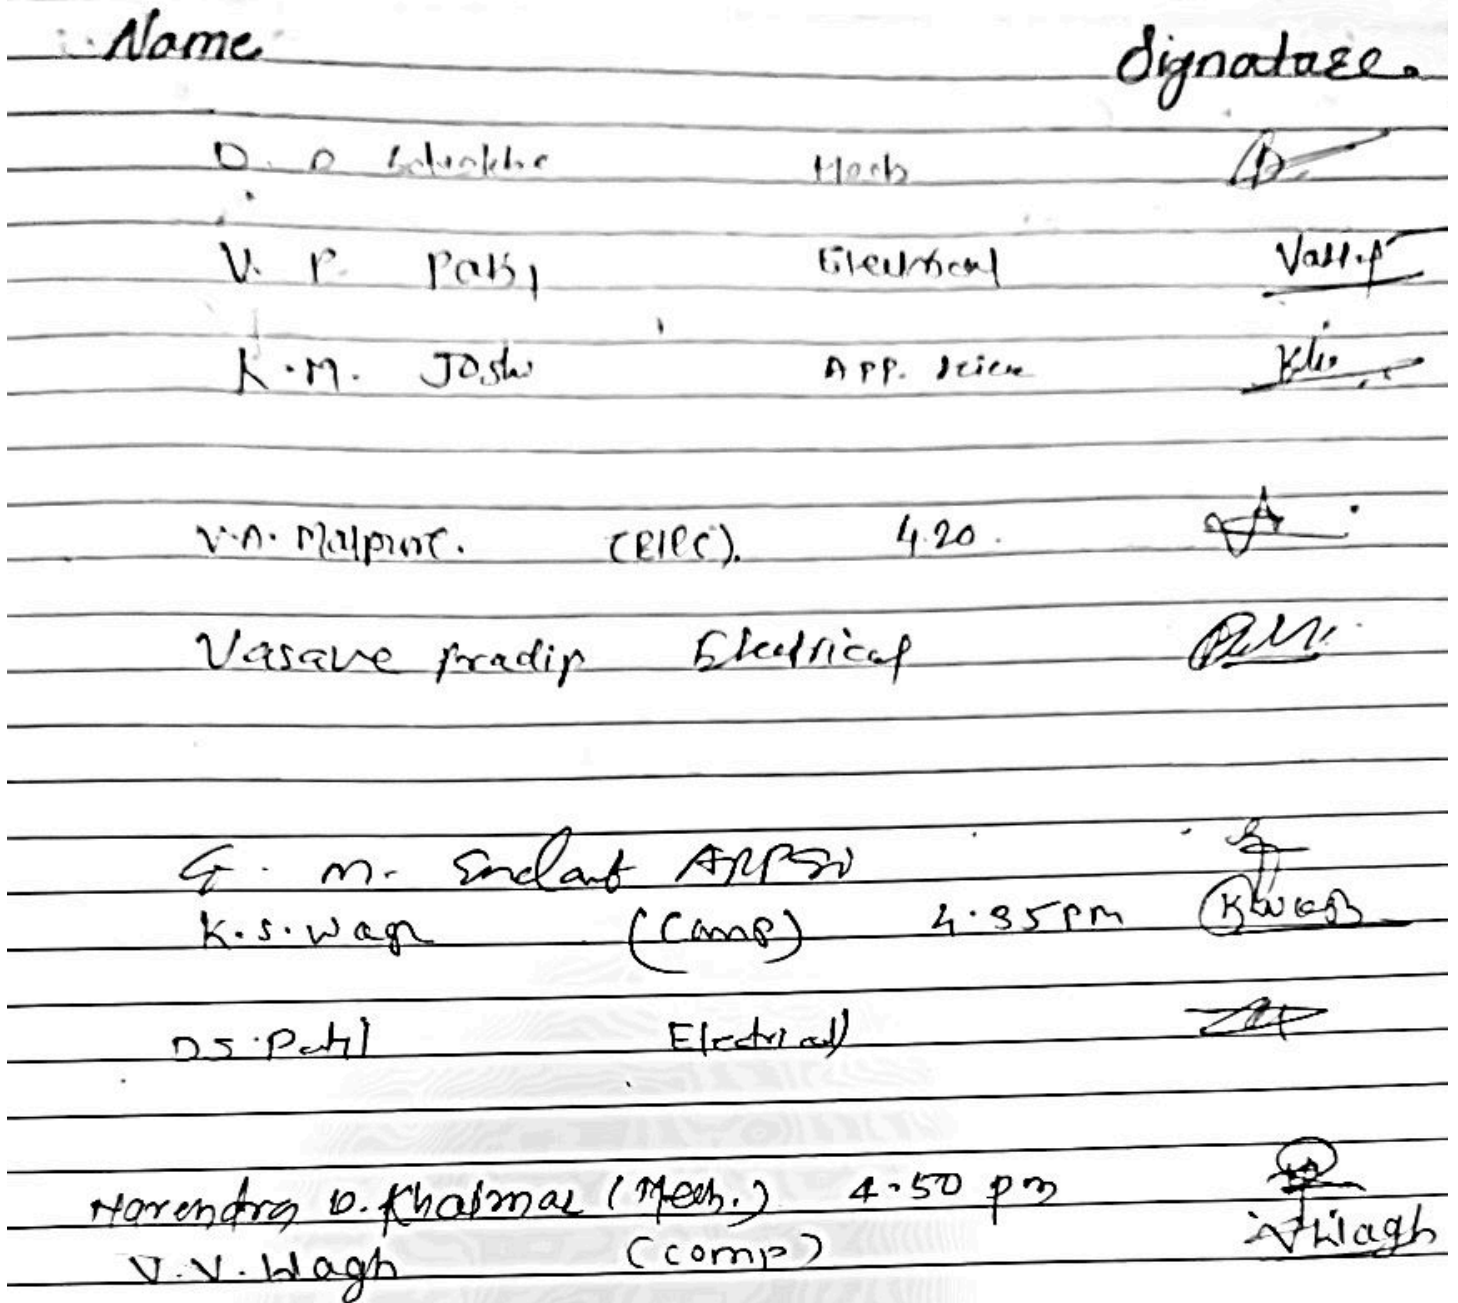 Name Signature.
D. D. Mech
V. P. Patil Electrical
K. M. Joshi App. Scien
V. A. 4.20.
Vasave pradip Electrical
G. M.
K.S. Wagh (Comp) 4.35 pm KWagh
D S. Patil Electrical
Narendra D. (Mech.) 4.50 pm
V. V. Wagh (comp) VWagh